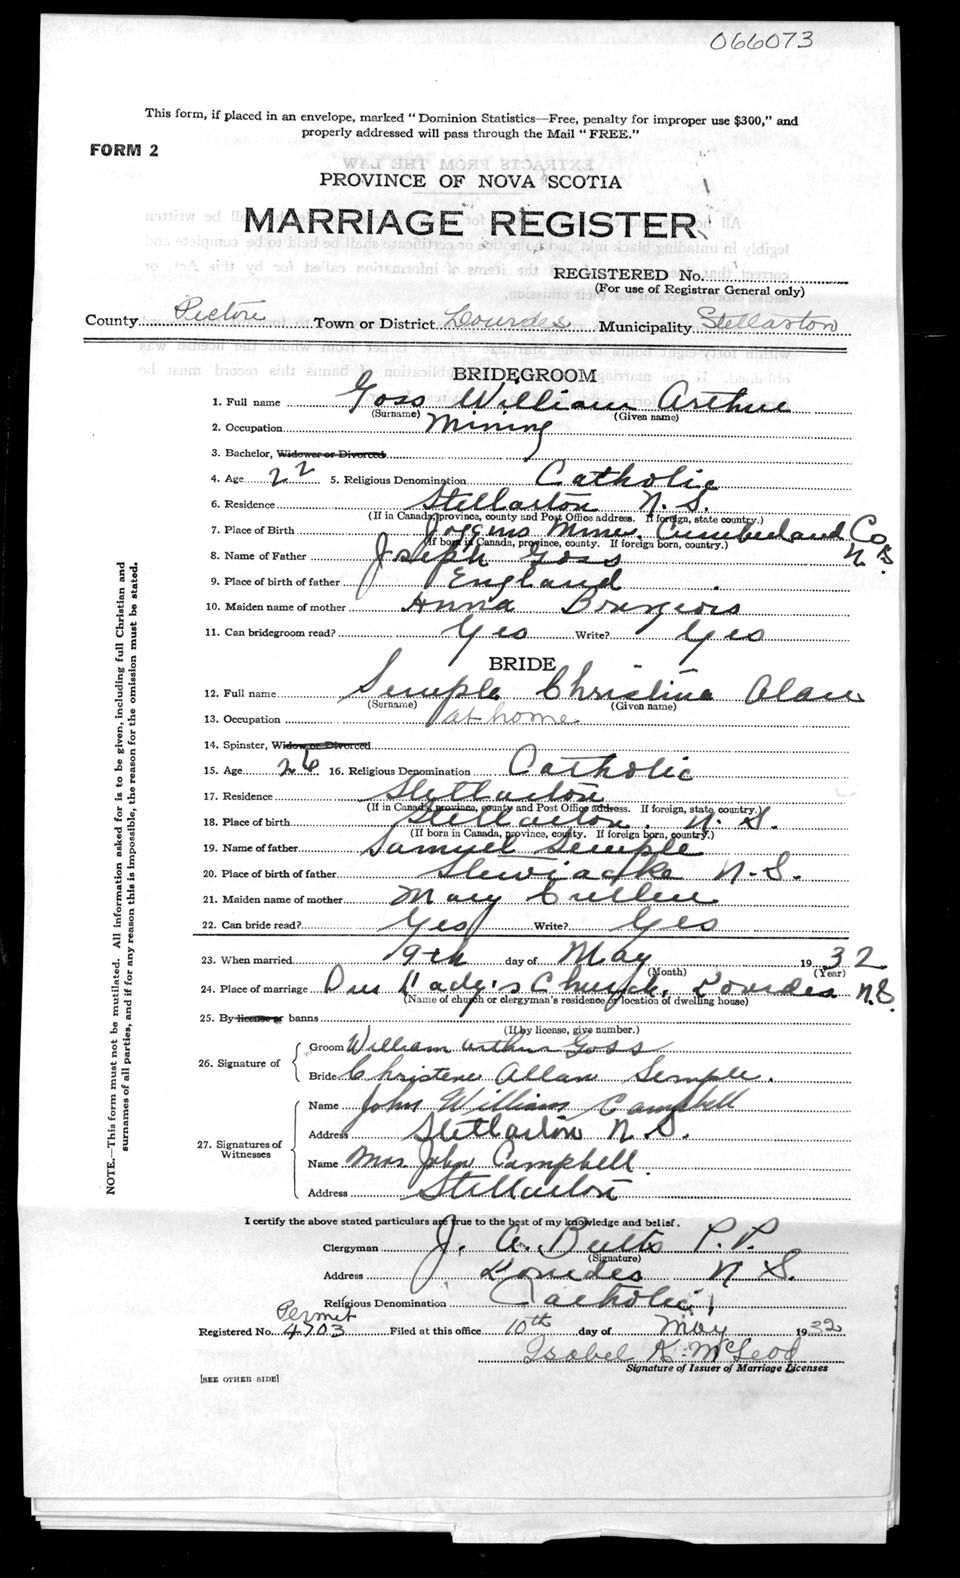 066073
This form, if placed in an envelope, marked "Dominion Statistics—Free, penalty for improper use $300," and
properly addressed will pass through the Mail "FREE."
FORM 2
PROVINCE OF NOVA SCOTIA
MARRIAGE REGISTER
REGISTERED No.
(For use of Registrar General only)
County Pictou Town or District Lourdes Municipality Stellarton
BRIDEGROOM
1. Full name Goss William Arthur
(Surname) (Given name)
2. Occupation Mining
3. Bachelor, Widower or Divorced
4. Age 22 5. Religious Denomination Catholic
6. Residence Stellarton N.S.
(If in Canada, province, county and Post Office address. If foreign, state country.)
7. Place of Birth Joggins Mines, Cumberland Co. N.S.
(If born in Canada, province, county. If foreign born, country.)
8. Name of Father Joseph Goss
9. Place of birth of father England
10. Maiden name of mother Anna Bourgeois
11. Can bridegroom read? Yes Write? Yes
BRIDE
12. Full name Semple Christina Alan
(Surname) (Given name)
13. Occupation at home
14. Spinster, Widow or Divorced
15. Age 26 16. Religious Denomination Catholic
17. Residence Stellarton
(If in Canada, province, county and Post Office address. If foreign, state country.)
18. Place of birth Stellarton, N.S.
(If born in Canada, province, county. If foreign born, country.)
19. Name of father Samuel Semple
20. Place of birth of father N.S.
21. Maiden name of mother Mary Cullen
22. Can bride read? Yes Write? Yes
23. When married 9th day of May 1932
(Month) (Year)
24. Place of marriage Our Lady's Church, Lourdes N.S.
(Name of church or clergyman's residence or location of dwelling house)
25. By license or banns
(If by license, give number.)
26. Signature of Groom William Arthur Goss
Bride Christene Allan Semple.
27. Signatures of Witnesses Name John William Campbell
Address Stellarton N.S.
Name Mrs John Campbell
Address Stellarton
I certify the above stated particulars are true to the best of my knowledge and belief.
Clergyman J. A. Butts P.P.
(Signature)
Address Lourdes N.S.
Religious Denomination Catholic
Permit
Registered No. 4703 Filed at this office 10th day of May 1932
Isabel K. McLeod
Signature of Issuer of Marriage Licenses
[SEE OTHER SIDE]
NOTE.—This form must not be mutilated. All information asked for is to be given, including full Christian and
surnames of all parties, and if for any reason this is impossible, the reason for the omission must be stated.